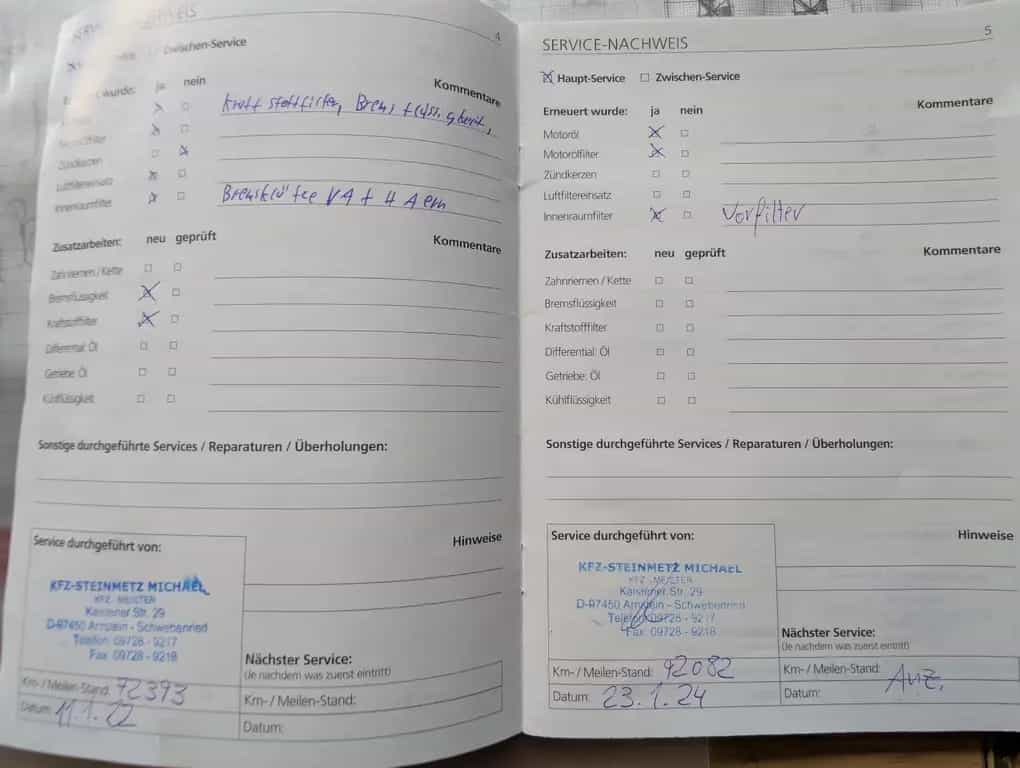 4
Zwischen-Service
wurde: ja nein Kommentare
Kraftstoffilter, Brems
Zündkerzen
Luftfiltereinsatz
Innenraumfilter Bremsklötze VA + HA ern
Zusatzarbeiten: neu geprüft Kommentare
Zahnriemen / Kette
Bremsflüssigkeit
Kraftstofffilter
Differential: Öl
Getriebe: Öl
Kühlflüssigkeit
Sonstige durchgeführte Services / Reparaturen / Überholungen:
Service durchgeführt von: Hinweise
KFZ-STEINMETZ MICHAEL
KFZ MEISTER
Str. 29
D-97450 Arnstein - Schwebenried
Telefon 09728 - 9217
Fax 09728 - 9218
Nächster Service:
(Je nachdem was zuerst eintritt)
Km- / Meilen-Stand: 72393 Km- / Meilen-Stand:
Datum: 11.1.22 Datum:
5
SERVICE-NACHWEIS
Haupt-Service Zwischen-Service
Erneuert wurde: ja nein Kommentare
Motoröl
Motorölfilter
Zündkerzen
Luftfiltereinsatz
Innenraumfilter Vorfilter
Zusatzarbeiten: neu geprüft Kommentare
Zahnriemen / Kette
Bremsflüssigkeit
Kraftstofffilter
Differential: Öl
Getriebe: Öl
Kühlflüssigkeit
Sonstige durchgeführte Services / Reparaturen / Überholungen:
Service durchgeführt von: Hinweise
KFZ-STEINMETZ MICHAEL
KFZ MEISTER
Str. 29
D-97450 Arnstein - Schwebenried
Telefon 09728 - 9217
Fax 09728 - 9218
Nächster Service:
(Je nachdem was zuerst eintritt)
Km- / Meilen-Stand: 92082 Km- / Meilen-Stand: Anz.
Datum: 23.1.24 Datum: